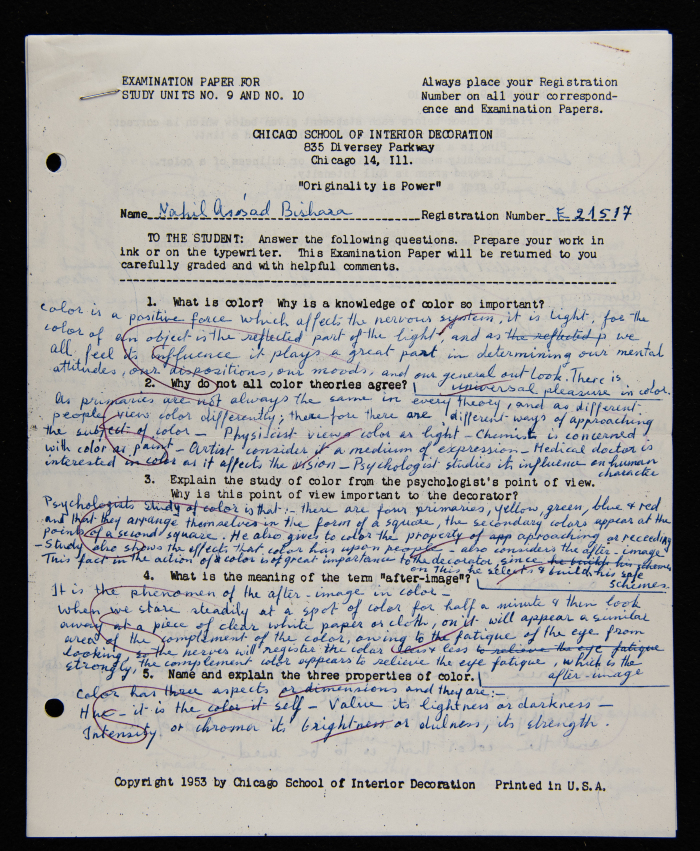 EXAMINATION PAPER FOR
STUDY UNITS NO. 9 AND NO. 10
Always place your Registration
Number on all your correspond-
ence and Examination Papers.
CHICAGO SCHOOL OF INTERIOR DECORATION
835 Diversey Parkway
Chicago 14, Ill.
"Originality is Power"
Name Nahil Bishara Registration Number E 21517
TO THE STUDENT: Answer the following questions. Prepare your work in
ink or on the typewriter. This Examination Paper will be returned to you
carefully graded and with helpful comments.
1. What is color? Why is a knowledge of color so important?
Color is a positive force which affects the nervous system, it is light, for the
color of an object is the reflected part of the light, and as the reflected p we
all feel its influence it plays a great part in determining our mental
attitudes, our dispositions, our moods, and our general out look. There is
universal pleasure in color.
2. Why do not all color theories agree?
As primaries are not always the same in every theory, and as different
people view color differently; therefore there are different ways of approaching
the subject of color - Physicist views color as light - Chemist is concerned
with color as paint - Artist consider it a medium of expression - Medical doctor is
interested in color as it affects the vision - Psychologist studies its influence on human
character
3. Explain the study of color from the psychologist's point of view.
Why is this point of view important to the decorator?
Psychologists study of color is that :- there are four primaries, yellow, green, blue & red
and that they arrange themselves in the form of a square, the secondary colors appear at the
points of a second square. He also gives to color the property of app approaching or receeding
- Study also shows the effects that color has upon people - also considers the after-image
This fact in the action of color is of great importance to the decorator since he builds his schemes
on this he selects & builds his safe
schemes.
4. What is the meaning of the term "after-image"?
It is the phenomen of the after-image in color -
when we stare steadily at a spot of color for half a minute & then look
away at a piece of clear white paper or cloth, on it will appear a similar
area of the complement of the color, owing to the fatigue of the eye from
looking so the nerves will register the color less & less to relieve the eye fatigue
strongly, the complement color appears to relieve the eye fatigue, which is the
after-image
5. Name and explain the three properties of color.
Color has three aspects or dimensions and they are :-
Hue - it is the color it self - Value its lightness or darkness -
Intensity or chroma its brightness or dulness, its strength.
Copyright 1953 by Chicago School of Interior Decoration Printed in U.S.A.